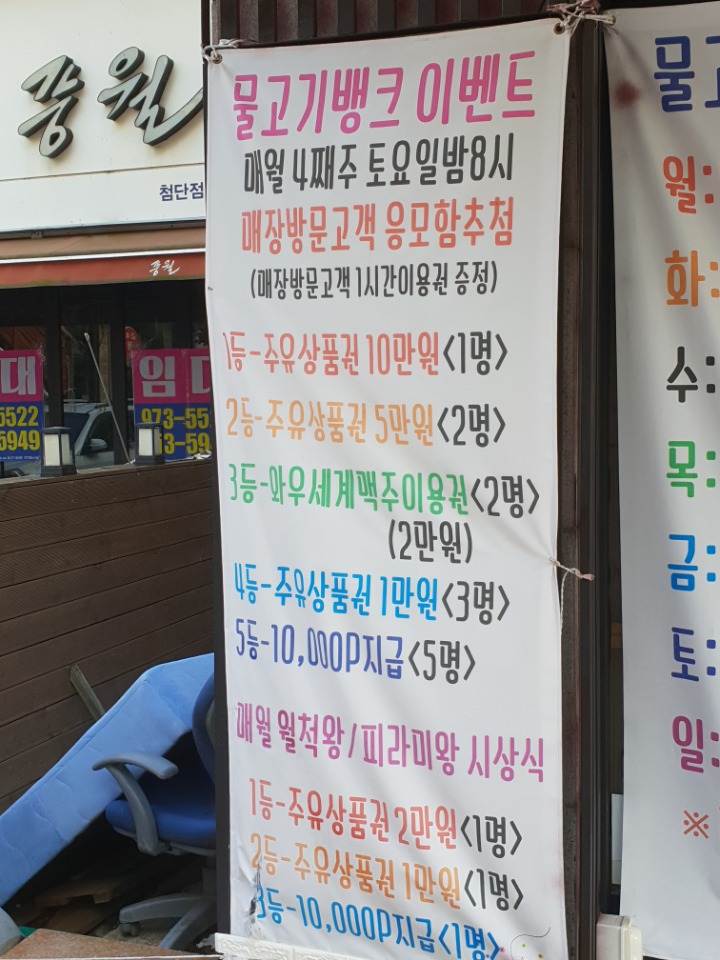 풍월
첨단점
풍월
대
5522
5949
임대
973-55
물고기뱅크 이벤트
매월 4째주 토요일밤8시
매장방문고객 응모함추첨
(매장방문고객 1시간이용권 증정)
1등-주유상품권 10만원<1명>
2등-주유상품권 5만원<2명>
3등-와우세계맥주이용권<2명>
(2만원)
4등-주유상품권 1만원<3명>
5등-10,000P지급<5명>
매월 월척왕/피라미왕 시상식
1등-주유상품권 2만원<1명>
2등-주유상품권 1만원<1명>
3등-10,000P지급<1명>
월:
화:
수:
목:
금:
토:
일:
※